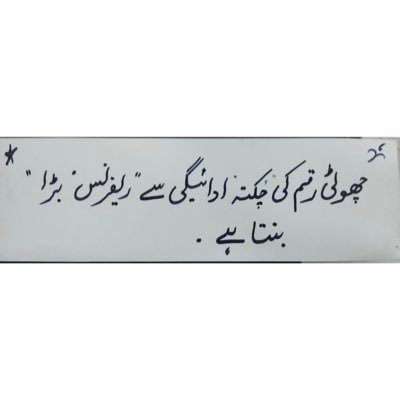 چھوٹی رقم کی چُکتہ ادائیگی سے "ریفرنس" بڑا"
بنتا ہے .